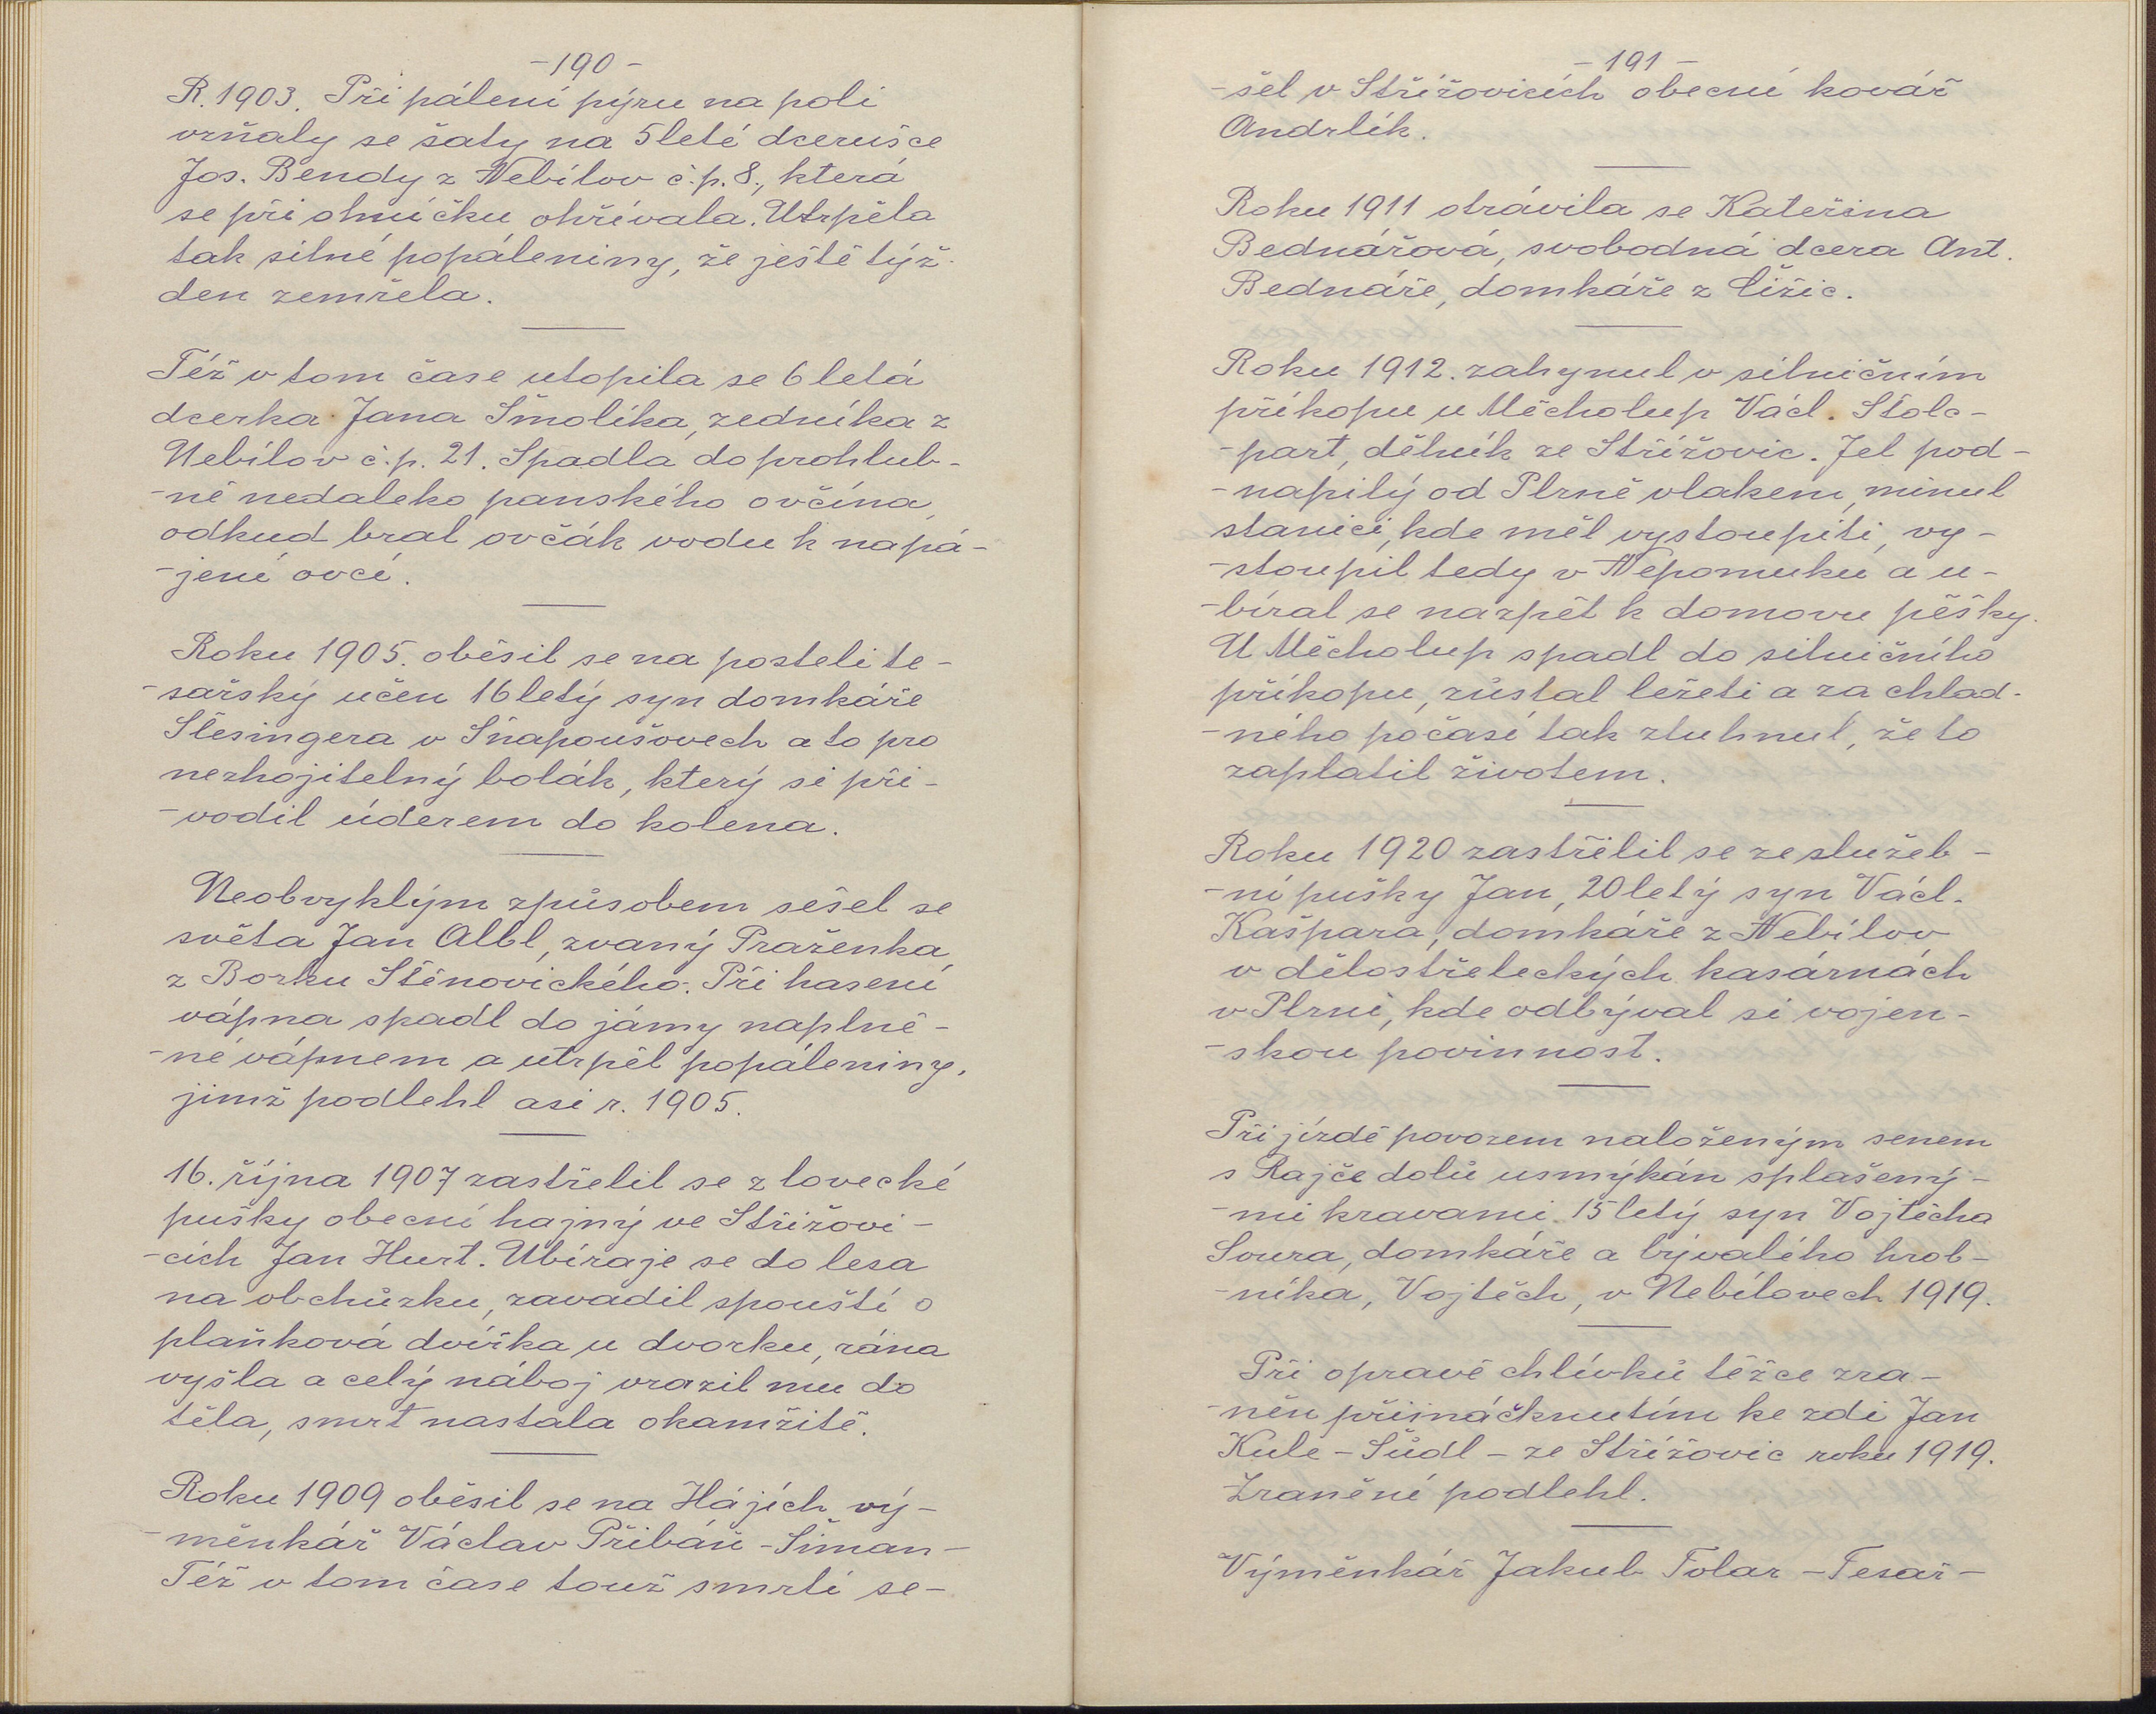 -190-
R. 1903. Při pálení pýru na poli
vzňaly se šaty na 5leté dcerušce
Jos. Bendy z Nebílov č.p. 8., která
se při ohníčku ohřívala. Utrpěla
tak silné popáleniny, že ještě týž
den zemřela.
Též v tom čase utopila se 6 letá
dcerka Jana Šmolíka, zedníka z
Nebílov č.p. 21. Spadla do prohlub-
-ně nedaleko panského ovčína,
odkud bral ovčák vodu k napá-
-jení ovcí.
Roku 1905. oběsil se na posteli te-
-sařský učen 16letý syn domkáře
Šlesingera v Šnapoušovech a to pro
nezhojitelný bolák, který si při-
-vodil úderem do kolena.
Neobvyklým způsobem sešel se
světa Jan Albl, zvaný Praženka,
z Borku Štěnovického. Při hašení
vápna spadl do jámy naplně-
-né vápnem a utrpěl popáleniny,
jimž podlehl asi r. 1905.
16. října 1907 zastřelil se z lovecké
pušky obecní hajný ve Střížovi-
-cích Jan Hurt. Ubíraje se do lesa
na obchůzku, zavadil spouští o
plaňková dvířka u dvorku, rána
vyšla a celý náboj vrazil mu do
těla, smrt nastala okamžitě.
Roku 1909 oběsil se na Hájích vý-
-měnkář Václav Přibáň - Šiman -
Též v tom čase touž smrtí se-
- 191 -
-šel v Střížovicích obecní kovář
Andrlík.
Roku 1911 otrávila se Kateřina
Bednářová, svobodná dcera Ant.
Bednáře, domkáře z Čižic.
Roku 1912. zahynul v silničním
příkopu u Měcholup Václ. Štolc-
-part, dělník ze Střížovic. Jel pod-
-napilý od Plzně vlakem, minul
stanici, kde měl vystoupiti, vy-
-stoupil tedy v Nepomuku a u-
-bíral se nazpět k domovu pěšky.
U Měcholup spadl do silničního
příkopu, zůstal ležeti a za chlad-
-ného počasí tak ztuhnul, že to
zaplatil životem.
Roku 1920 zastřelil se ze služeb-
-ní pušky Jan, 20letý syn Václ.
Kašpara, domkáře z Nebílov
v dělostřeleckých kasárnách
v Plzni, kde odbýval si vojen-
-skou povinnost.
Při jízdě povozem naloženým senem
s Rajče dolů usmýkán splašený-
-mi kravami 15letý syn Vojtěcha
Soura, domkáře a bývalého hrob-
-níka, Vojtěch, v Nebílovech 1919.
Při opravě chlívků těžce zra-
-něn přimáčknutím ke zdi Jan
Kule - Šůdl - ze Střížovic roku 1919.
Zranění podlehl.
Výměnkář Jakub Tolar - Tesař -